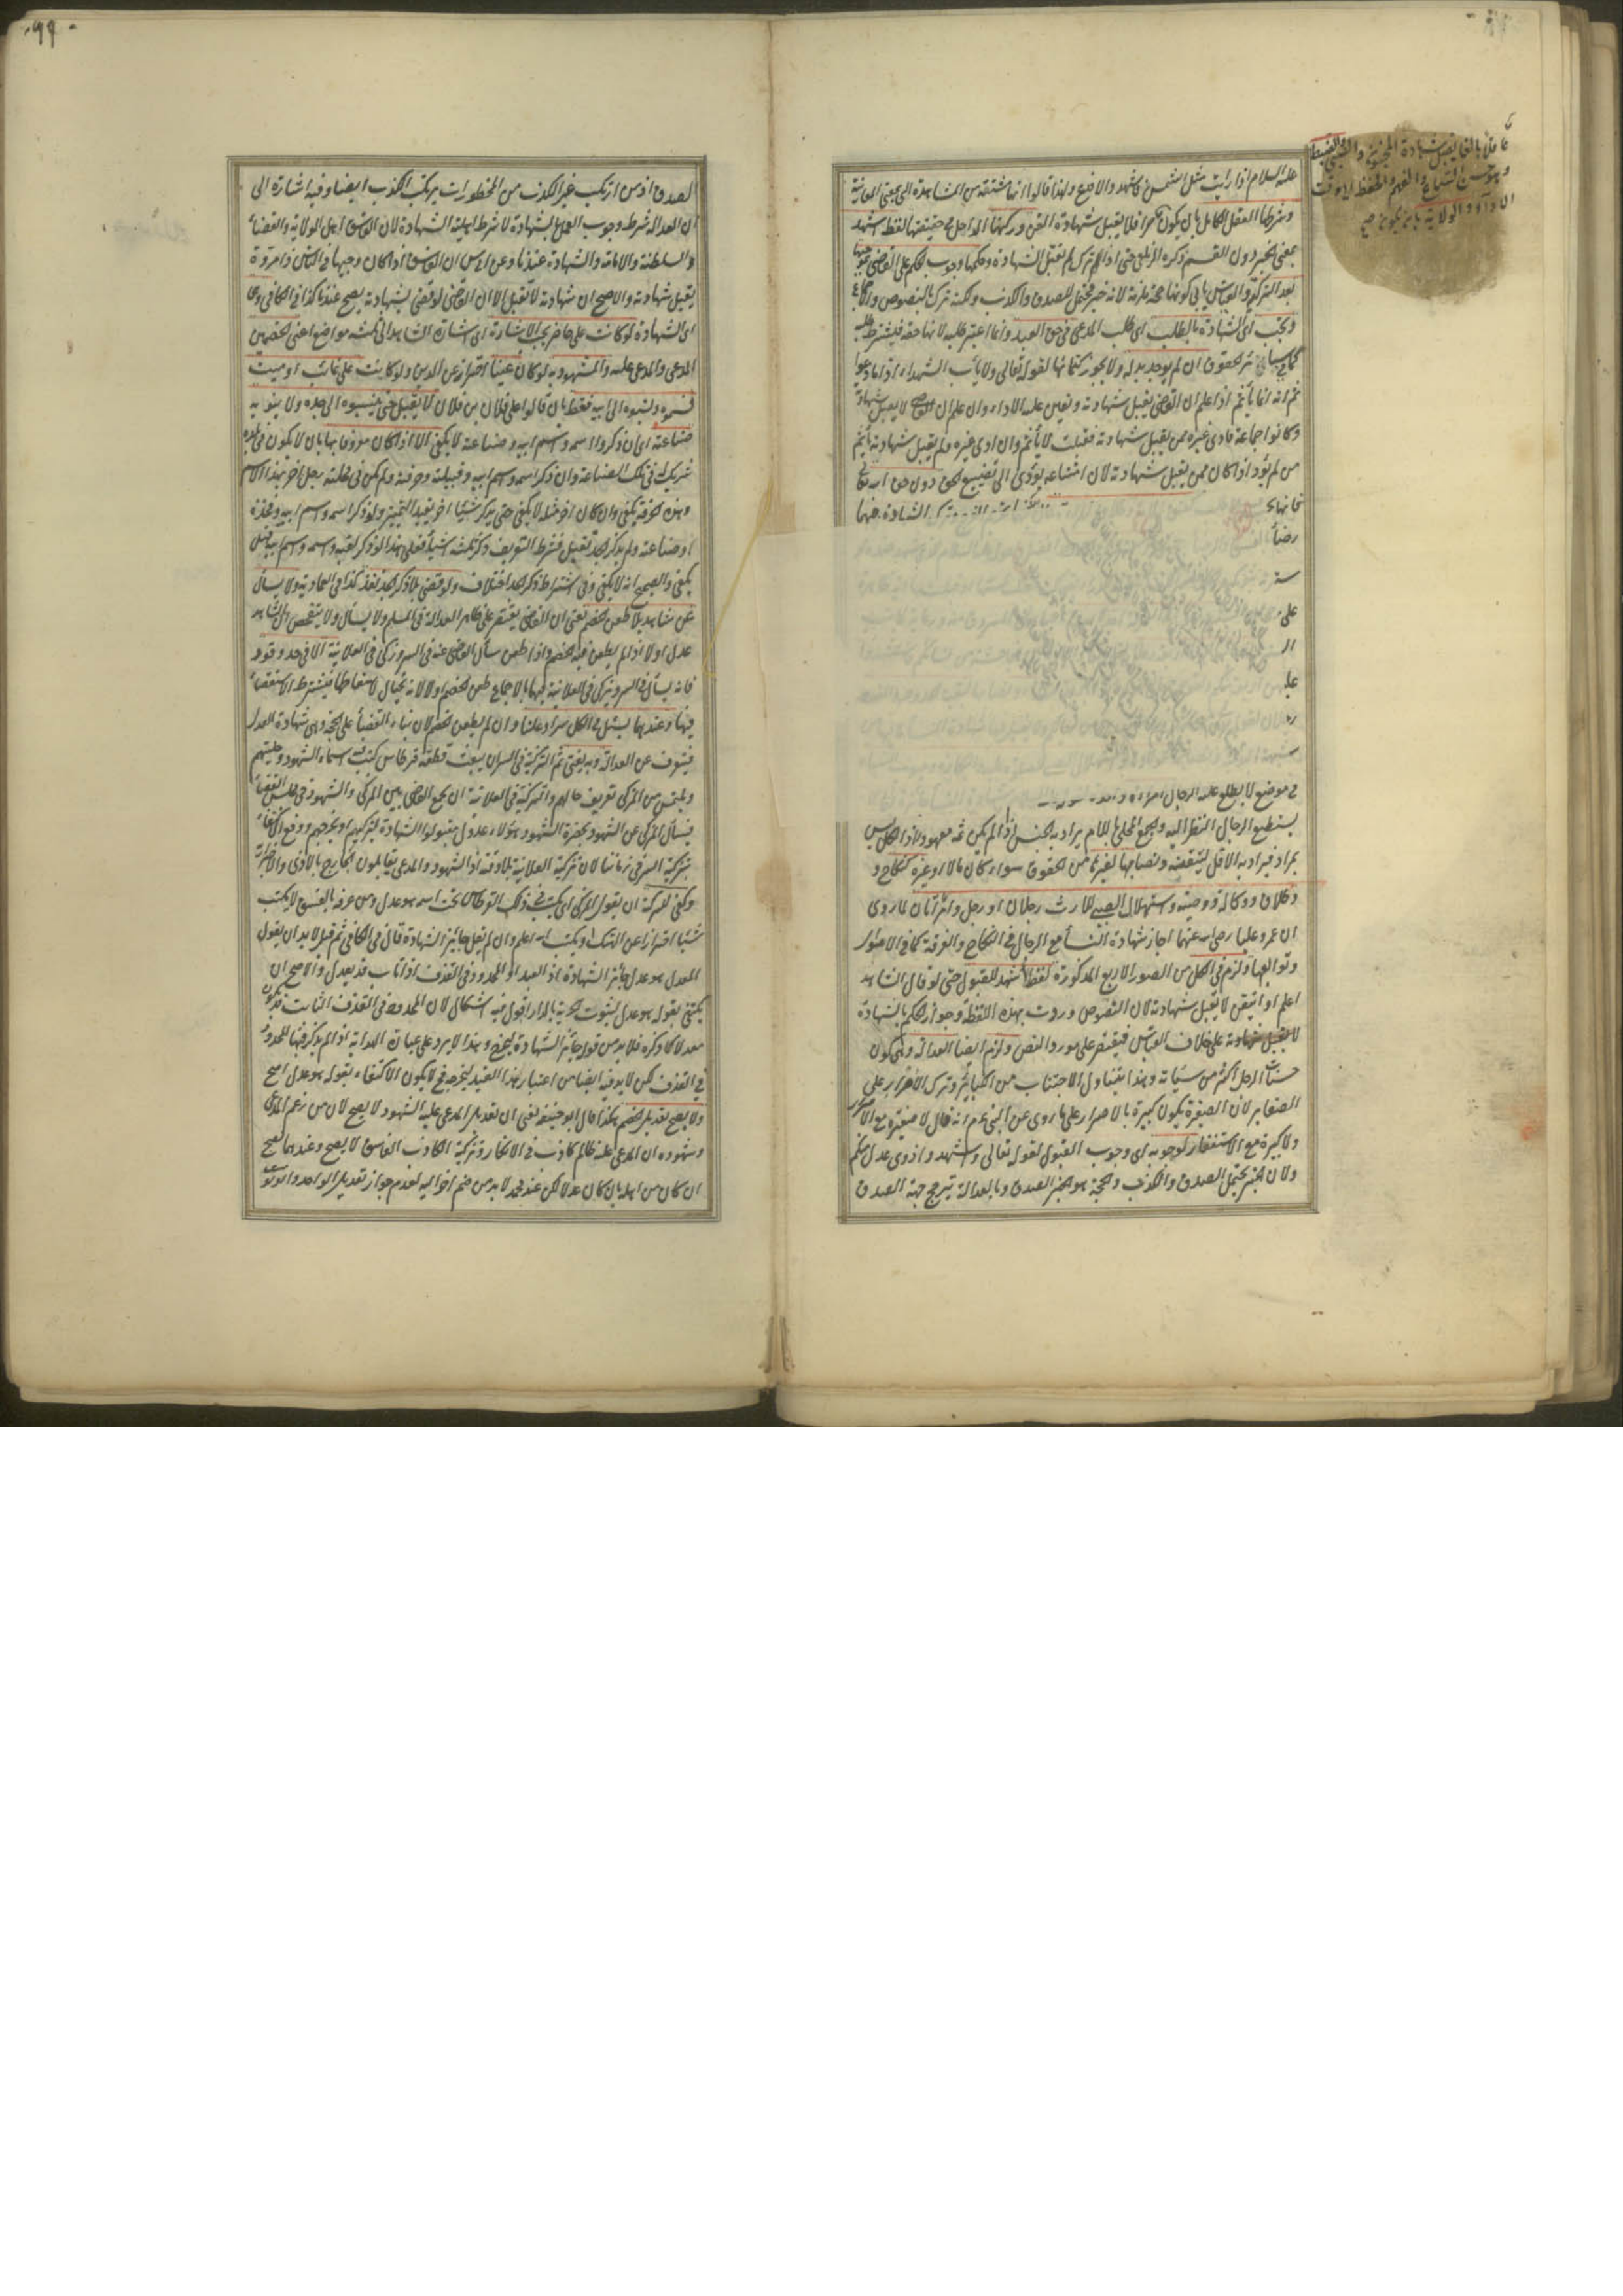 عليه السلام اذا رايت مثل الشمس فاشهد والا فدع ولهذا قالوا انها مشتقة من المشاهدة التي بمعنى المعاينة
وشرطها العقل الكامل بان يكون حرا فلا يقبل شهادة القن وركنها الداخل في حقيقتها لفظ اشهد
بمعنى الخبر دون القسم ذكره الزيلعي حتى اذا لم يترك لم تقبل الشهادة وحكمها وجوب الحكم على القاضي بموجبها
بعد التزكية والقياس يأبى كونها حجة ملزمة لانه خبر محتمل للصدق والكذب ولكنه ترك بالنصوص والاجماع
وتجب اى الشهادة بالطلب اى طلب المدعي في حق العبد وانما اعتبر طلبه لانها حقه فيشترط طلبه
كما في سائر الحقوق ان لم يوجد بدله ولا يجوز كتمانها لقوله تعالى ولا يأب الشهداء اذا ما دعوا
ثم انه انما يأثم اذا علم ان القاضي يقبل شهادته وتعين عليه الاداء وان علم ان القاضي لا يقبل شهادته
وكانوا جماعة فادى غيره ممن يقبل شهادته فقبلت لا يأثم وان ادى غيره ولم يقبل شهادته يأثم
من لم يؤد اذا كان ممن يقبل شهادته لان امتناعه يؤدى الى تضييع الحق دون حق الله تعالى
فانها
رضا
ستر
على
الـ
عليـ
في موضع لا يطلع عليه الرجال امرأة
يستطيع الرجال النظر اليه والجمع المحلى باللام يراد به الجنس اذا لم يكن ثمه معهود واذا الكل ليس
بمراد فيراد به الاقل ليتيقنه ونصابها لغيرها من الحقوق سواء كان مالا او غيره كنكاح و
وطلاق ووكالة ووصية واستهلال الصبي للارث رجلان او رجل وامرأتان لما روى
ان عمر وعليا رضي الله عنهما اجاز شهادة النساء مع الرجال في النكاح والفرقة كما في الاموال
وتوابعها ولزم في الكل من الصور الاربع المذكورة لفظ اشهد للقبول حتى لو قال الشاهد
اعلم او اتيقن لا يقبل شهادته لان النصوص وردت بهذه اللفظة وجواز الحكم بالشهادة
لا يقبل شهادته على خلاف القياس فيقتصر على مورد النص ولزم ايضا العدالة وهي كون
حسنات الرجل اكثر من سيئاته وهذا يتناول الاجتناب من الكبائر وترك الاصرار على
الصغاير لان الصغيرة يكون كبيرة بالاصرار على ما روى عن النبي عم انه قال لا صغيرة مع الاصرار
ولا كبيرة مع الاستغفار لوجوبه اى وجوب القبول لقوله تعالى واشهدوا ذوى عدل منكم
ولان الخبر يحتمل الصدق والكذب والحجة هو الخبر الصدق وبالعدالة تترجح جهة الصدق
عاقلا بالغا يقبل شهادة المجنون والصبي والضبط
وهو حسن السماع والفهم والحفظ الى وقت
الاداء والولاية بان يكون صح
٩٩
لصدق اذ من ارتكب غير الكذب من المحظورات يرتكب الكذب ايضا وفيه اشارة الى
ان العدالة شرط وجوب العمل بالشهادة لا شرط اهلية الشهادة لان الفاسق اهل الولاية والقضاء
والسلطنة والامامة والشهادة عندنا وعن ابي س ان الفاسق اذا كان وجيها في الناس ذا مروة
يقبل شهادته والاصح ان شهادته لا تقبل الا ان القاضي لو قضى بشهادته يصح عندنا كذا في الكافي وفي
اى الشهادة لو كانت على حاضر يجب الاشارة اى اشارة الشاهد الى ثلثة مواضع اعني الخصمين
المدعي والمدعى عليه والمشهود به لو كان عينا احتراز عن الدين ولو كانت على غائب او ميت
فسموه ونسبوه الى ابيه فقط بان قالوا على فلان بن فلان لا يقبل حتى ينسبوه الى جده ولا ينوبه
صناعته اى ان ذكروا اسمه واسم ابيه وصناعته لا يكفى الا اذا كان معروفا بها بان لا يكون في بلده
شريك له في تلك الصناعة وان ذكر اسمه واسم ابيه وقبيلته وحرفته ولم يكن في محلته رجل اخر بهذا الاسم
وهذه الحرفة يكفى وان كان اخر مثله لا يكفى حتى يذكر شيئا اخر يفيد التمييز ولو ذكر اسمه واسم ابيه وفخذه
او صناعته ولم يذكر الجد تقبل فشرط التعريف ذكر ثلثة اشياء فعلى هذا لو ذكر لقبه واسمه واسم ابيه قيل
يكفى والصحيح انه لا يكفى وفي اشتراط ذكر الجد اختلاف ولو قضى بلا ذكر الجد نفذ كذا في العمادية ولا يسأل
عن شاهد بلا طعن الخصم يعنى ان القاضي يقتصر على ظاهر العدالة في المسلم ولا يسأل ولا يتفحص ان الشاهد
عدل او لا اذا لم يطعن فيه الخصم واذا طعن سأل القاضي عنه في السر وزكى في العلانية الا في حد وقود
فانه يسأل في السر ويزكى في العلانية فيها بالاجماع طعن الخصم او لا لانه يحتال لاسقاطها فيشترط الاستقصاء
فيها وعندهما يسئل في الكل سرا وعلنا وان لم يطعن الخصم لان بناء القضاء على الحجة وهي شهادة العدل
فيتعرف عن العدالة وبه يفتى ثم التزكية في السر ان يبعث قطعة قرطاس كتب فيه اسماء الشهود وحليتهم
ويلتمس من المزكى تعريف حالهم والتزكية في العلانية ان يجمع القاضي بين المزكى والشهود في مجلس القضاء
فيسأل المزكى عن الشهود بحضرة الشهود هؤلاء عدول مقبولوا الشهادة ليزكيهم او يجرحهم ووقع الاكتفاء
بتزكية السر في زماننا لان تزكية العلانية بلاء وفتنة اذ الشهود والمدعي يقابلون الجارح بالاذى والاضرار
وكفى للتزكية ان يقول المزكى اى يكتب في ذلك القرطاس تحت اسمه هو عدل ومن عرفه بالفسق لا يكتب
شيئا احترازا عن الهتك او يكتب الله اعلم وان لم يقل جائز الشهادة قال في الكافي ثم قيل لا بد ان يقول
المعدل هو عدل جائز الشهادة اذ العبد او المحدود في القذف اذا تاب قد يعدل والاصح ان
يكتفى بقوله هو عدل لثبوت الحرية بالدار اقول فيه اشكال لان المحدود في القذف الثابت قد يكون
معدلا كما ذكره فلا بد من قوله جائز الشهادة ليخرج وهذا لا يرد على عبارة الهداية اذ لم يذكر فيها المحدود
في القذف لكن لا بد فيه ايضا من اعتبار هذا القيد ليخرجه فح لا يكون الاكتفاء بقوله هو عدل اصح
ولا يصح تعديل الخصم هكذا قال ابو حنيفة يعنى ان تعديل المدعى عليه الشهود لا يصح لان من زعم المدعي
وشهوده ان المدعى عليه ظالم كاذب في الانكار وتزكية الكاذب الفاسق لا يصح وعندهما يصح
ان كان من اهله بان كان عدلا لكن عند محمد لا بد من ضم اخر اليه لعدم جواز تعديل الواحد